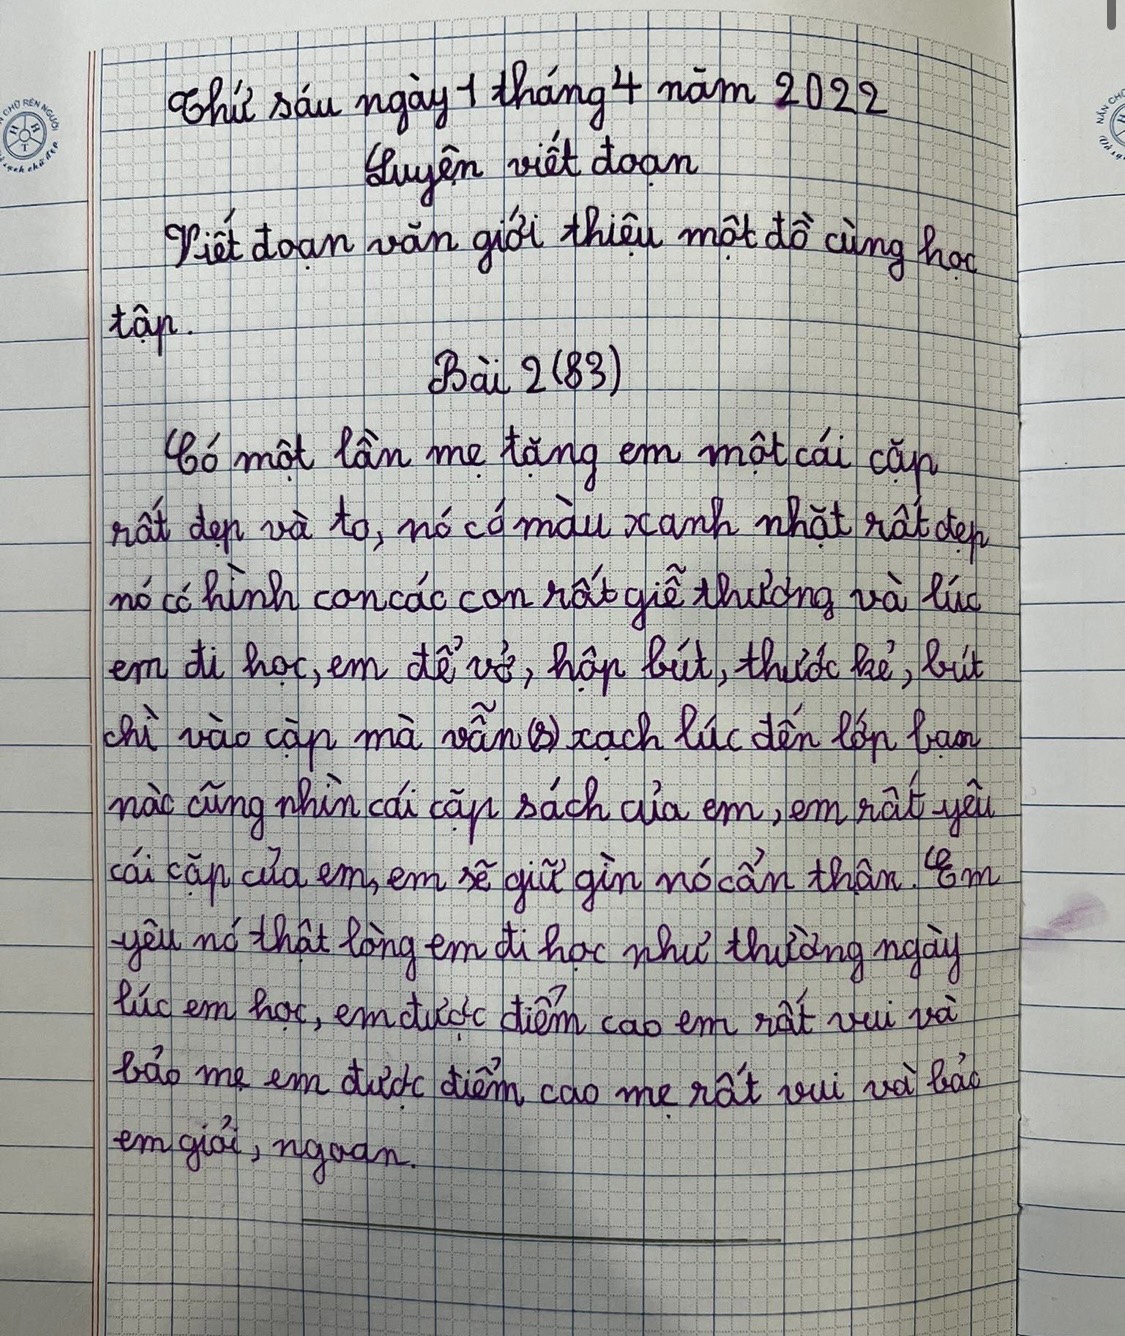 Thứ sáu ngày 1 tháng 4 năm 2022
Luyện viết đoạn
Viết đoạn văn giới thiệu một đồ cùng học
tập.
Bài 2 (83)
Có một lần mẹ tặng em một cái cặp
rất đẹp và to, nó có màu xanh nhặt rất đẹp
nó có hình con các con rất giễ thương và lúc
em đi học, em để vở, hộp bút, thước kẻ, bút
chì vào cặp mà vẫn (s) xạch lúc đến lớp bạn
nào cũng nhìn cái cặp sách của em, em rất yêu
cái cặp của em, em sẽ giữ gìn nó cẩn thận. Em
yêu nó thật lòng em đi học như thường ngày
lúc em học, em được điểm cao em rất vui và
bảo mẹ em được điểm cao mẹ rất vui và bảo
em giỏi, ngoan.